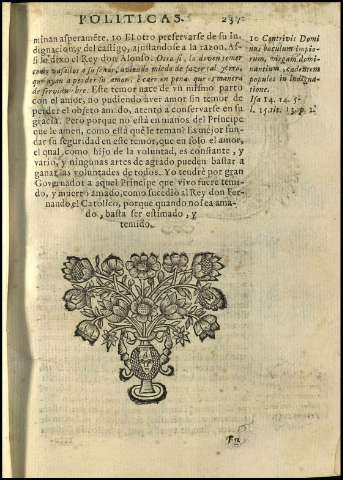 POLITICAS. 237
minan asperamẽte. 10 El otro preservarse de su in-
dignacion, y del castigo, ajustandose a la razon. As-
si le dixo el Rey don Alonso: Otro si, lo deven temer
como vasallos a su señor, aviendo miedo de fazer tal yerro,
que ayan a perder su amor. E caer en pena, que es manera
de servidũbre. Este temor nace de vn mismo parto
con el amor, no pudiendo aver amor sin temor de
perder el objeto amado, atento a conservarse en su
gracia. Pero porque no está en manos del Principe
que le amen, como está que le teman: Es mejor fun-
dar su seguridad en este temor, que en solo el amor,
el qual, como hijo de la voluntad, es constante, y
vario, y ningunas artes de agrado pueden bastar a
ganar las voluntades de todos. Yo tendré por gran
Governador a aquel Principe que vivo fuere temi-
do, y muerto amado, como sucedió al Rey don Fer-
nando el Catolico, porque quando no sea ama-
do, basta ser estimado, y
temido.
10 Contrivit Domi
nus baculum impio-
rum, virgam domi-
nantium, cadentem
populos in indigna-
tione.
Isa 14. 5.
l. 15. tit. 13. p. 2.